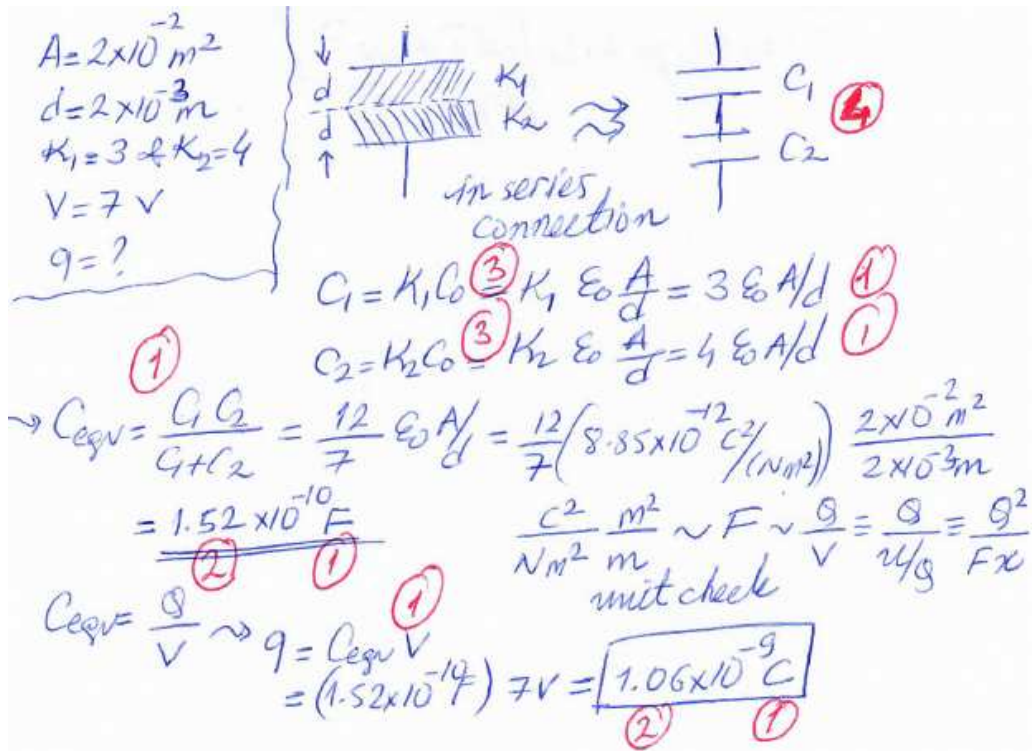 A = 2×10⁻² m²
d = 2×10⁻³ m
K₁ = 3 & K₂ = 4
V = 7 V
q = ?
d K₁
d K₂
C₁
C₂
④
in series
connection
C₁ = K₁C₀ ③ = K₁ ε₀ A/d = 3 ε₀ A/d ①
C₂ = K₂C₀ ③ = K₂ ε₀ A/d = 4 ε₀ A/d ①
①
→ Ceqv = C₁C₂/(C₁+C₂) = 12/7 ε₀ A/d = 12/7 (8.85×10⁻¹² C²/(Nm²)) 2×10⁻² m²/2×10⁻³ m
= 1.52×10⁻¹⁰ F
② ①
C²/Nm² m²/m ~ F ~ Q/V ≡ Q/U/Q ≡ Q²/Fx
unit check
Ceqv = Q/V ⇝ q = Ceqv V ①
= (1.52×10⁻¹⁰F) 7V = 1.06×10⁻⁹ C
② ①